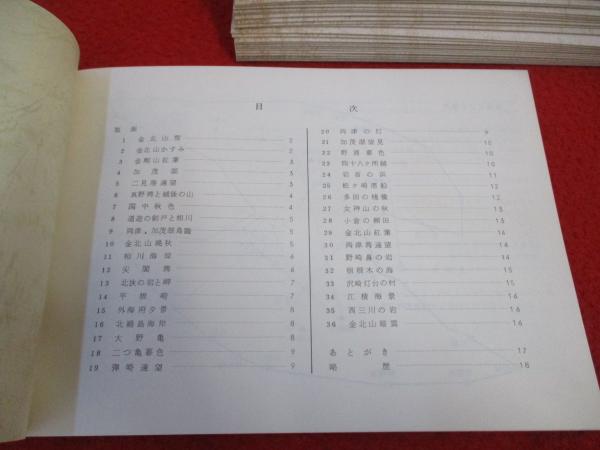 目　次
版画
1 金北山雪 2
2 金北山かすみ 2
3 金剛山紅葉 3
4 加茂湖 3
5 二見港遠望 3
6 真野湾と越後の山 4
7 国中秋色 4
8 道遊の割戸と相川 5
9 両津、加茂湖鳥瞰 5
10 金北山晩秋 5
11 相川海岸 6
12 尖閣湾 6
13 北狄の岩と岬 7
14 平根崎 7
15 外海府夕景 8
16 北鵜島海岸 8
17 大野亀 8
18 二つ亀暮色 9
19 弾崎遠望 9
20 両津の灯 9
21 加茂湖望見 10
22 野浦暮色 10
23 四十八ヶ所越 10
24 岩首の浜 11
25 松ヶ崎廃船 12
26 多田の桟橋 12
27 女神山の秋 13
28 小倉の棚田 13
29 金北山紅葉 13
30 両津湾遠望 14
31 野崎鼻の岩 14
32 宿根木の海 15
33 沢崎灯台の村 15
34 江積海景 16
35 西三川の岩 16
36 金北山暗雲 16
あとがき 17
略歴 18